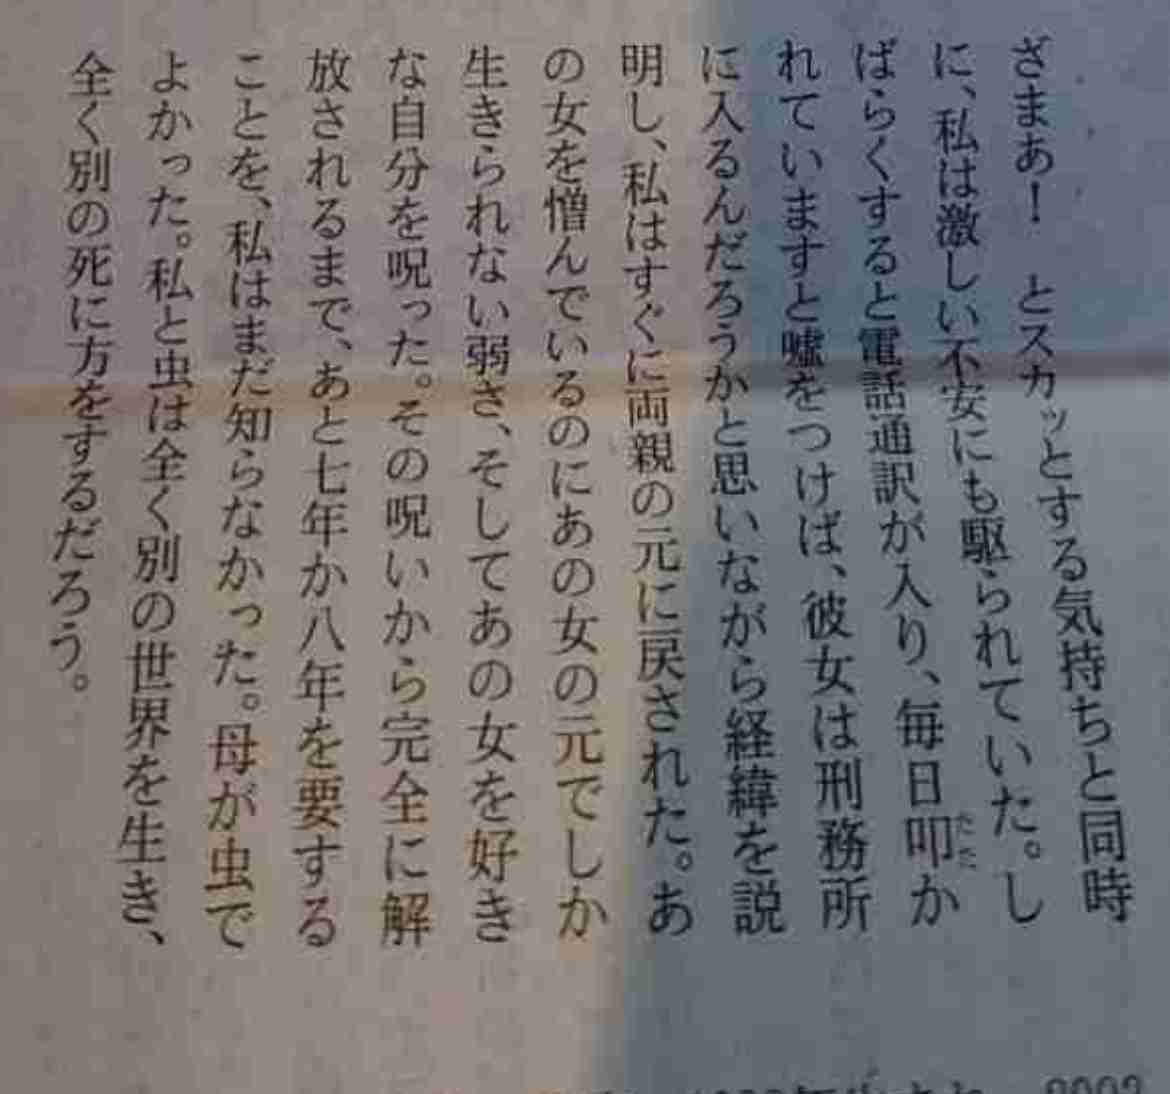 ざまあ！　とスカッとする気持ちと同時
に、私は激しい不安にも駆られていた。し
ばらくすると電話通訳が入り、毎日叩か
たた
れていますと嘘をつけば、彼女は刑務所
に入るんだろうかと思いながら経緯を説
明し、私はすぐに両親の元に戻された。あ
の女を憎んでいるのにあの女の元でしか
生きられない弱さ、そしてあの女を好き
な自分を呪った。その呪いから完全に解
放されるまで、あと七年か八年を要する
ことを、私はまだ知らなかった。母が虫で
よかった。私と虫は全く別の世界を生き、
全く別の死に方をするだろう。